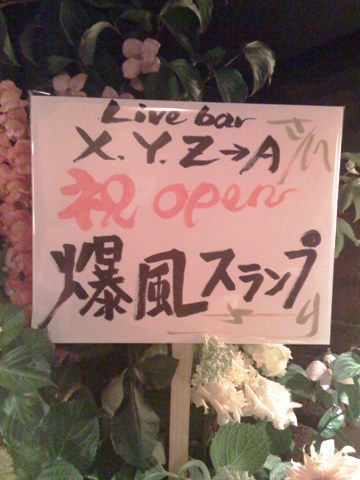 Live bar
X.Y.Z→A さん江
祝 open
爆風スランプ
より